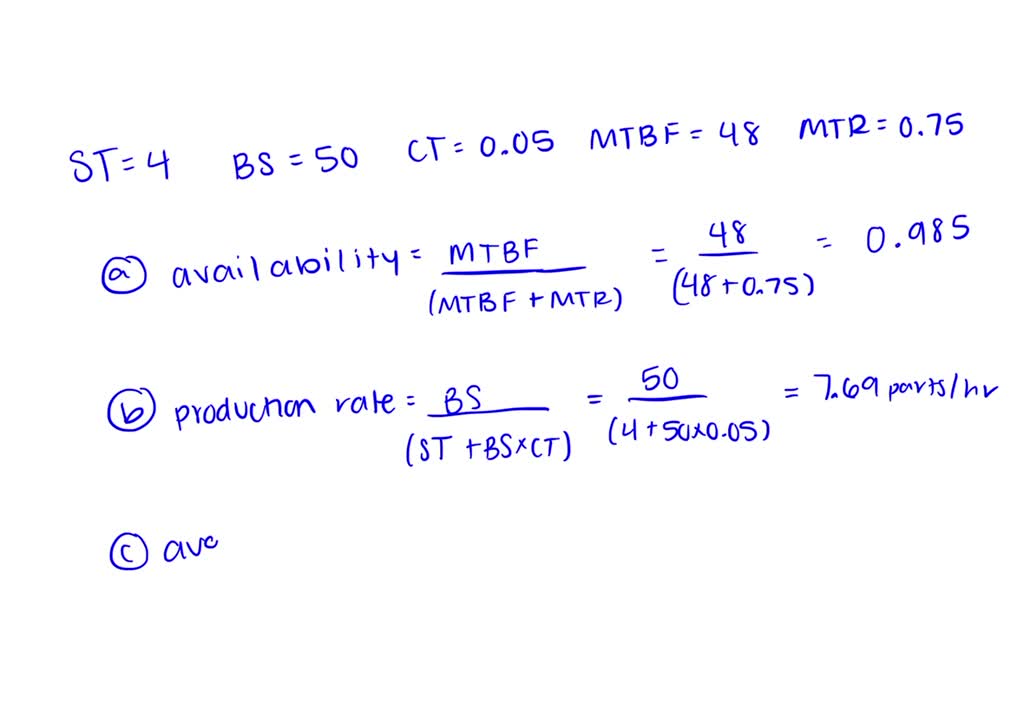 ST = 4 BS = 50 CT = 0.05 MTBF = 48 MTR = 0.75
(a) availability = MTBF / (MTBF + MTR) = 48 / (48 + 0.75) = 0.985
(b) production rate = BS / (ST + BS × CT) = 50 / (4 + 50 × 0.05) = 7.69 parts/hr
(c) ava